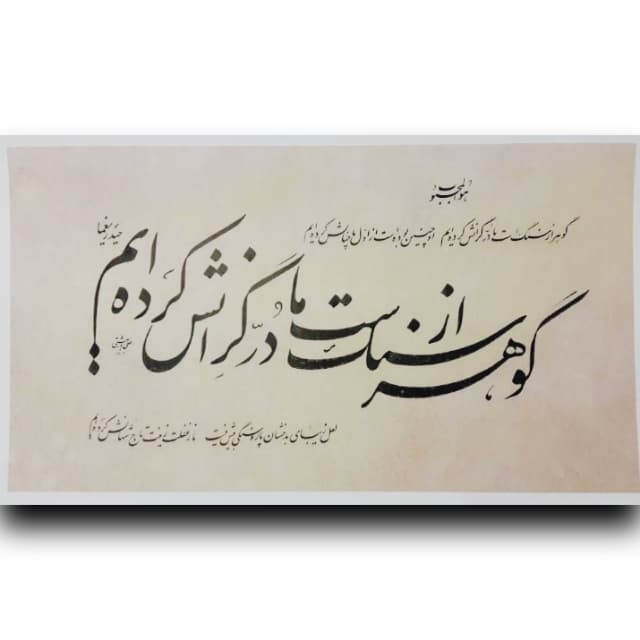 هوالمحبوب
گوهر از سنگ است ما دُر گرانش کرده ایم او چنین بوده ست از اول ما چنانش کرده ایم
حیدر یغما
گوهر از سنگ است ما دُرّ گرانش کرده ایم
لعل زیبای بدخشان پاره سنگی بیش نیست ما ز غفلت زینت تاج شهانش کرده ایم